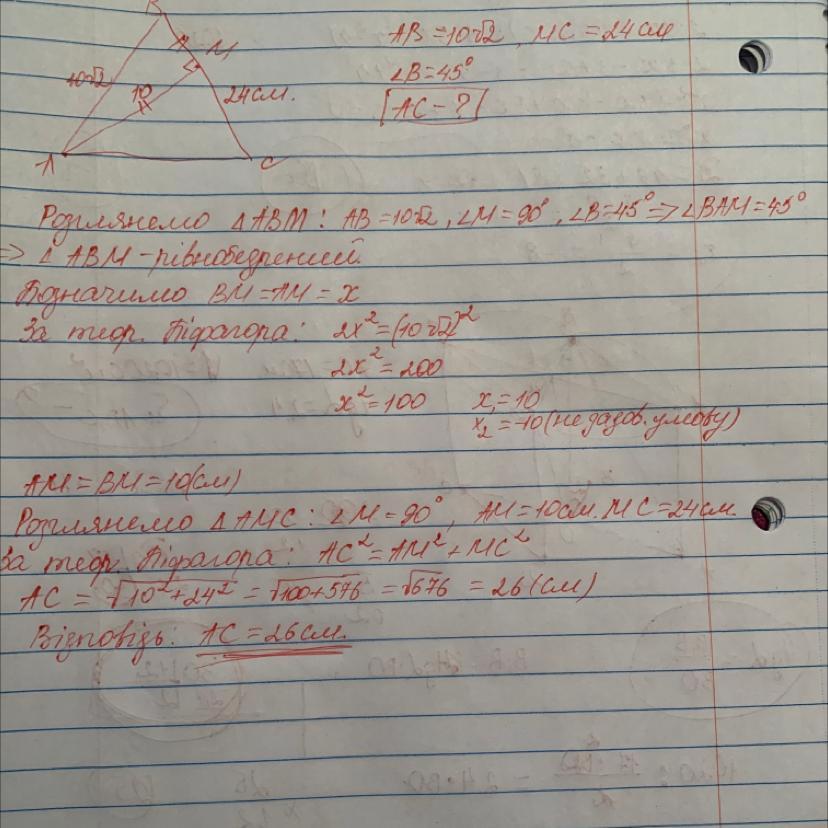 B
AB = 10√2, MC = 24 см
M
10√2
∠B = 45°
10
24 см.
AC - ?
A
C
Розглянемо △ABM: AB = 10√2, ∠M = 90°, ∠B = 45° => ∠BAM = 45°
=> △ABM - рівнобедрений.
Позначимо BM = AM = x
За теор. Піфагора: 2x² = (10√2)²
2x² = 200
x² = 100 x₁ = 10
x₂ = -10 (не задов. умову)
AM = BM = 10(см)
Розглянемо △AMC: ∠M = 90°, AM = 10см. MC = 24см.
За теор. Піфагора: AC² = AM² + MC²
AC = √10² + 24² = √100 + 576 = √676 = 26 (см)
Відповідь: AC = 26 см.